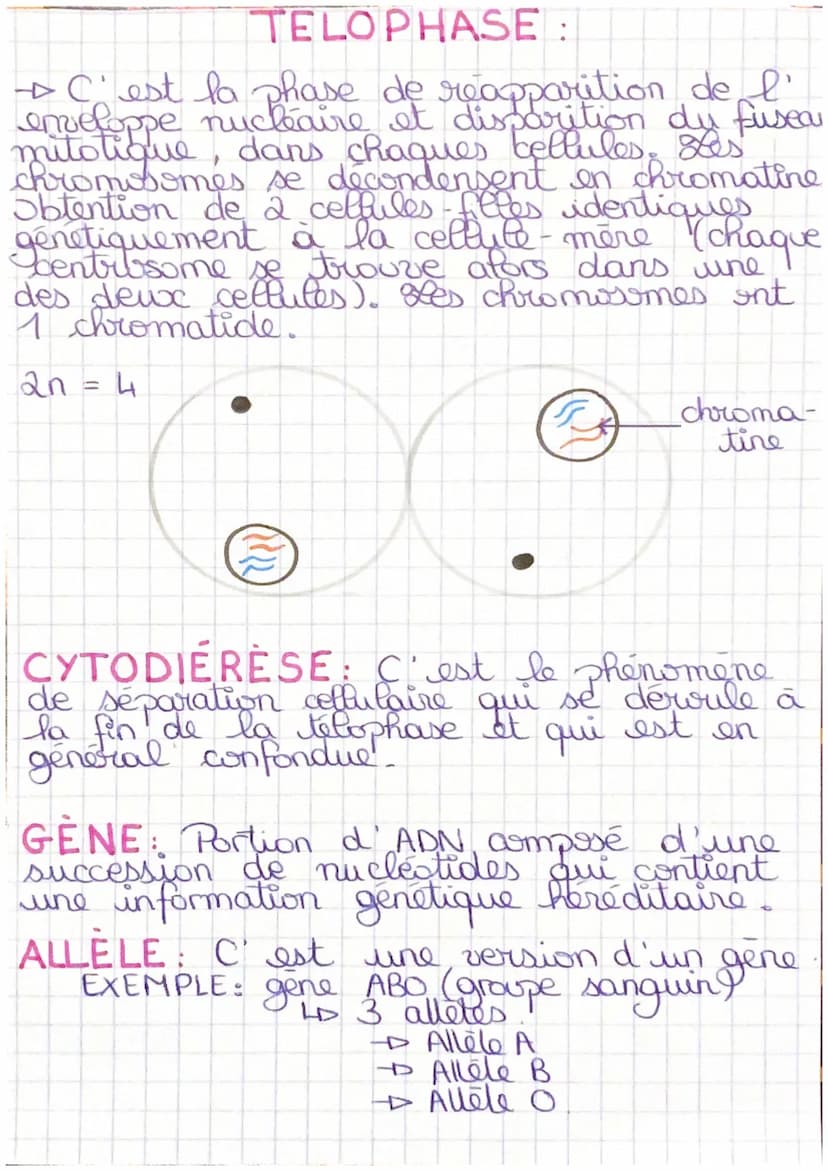 TELOPHASE :
→ C'est la phase de réapparition de l'
enveloppe nucléaire et disparition du fuseau
mitotique, dans chaques cellules. Les
chromosomes se décondensent en chromatine
Obtention de 2 cellules-filles identiques
génétiquement à la cellule-mère (chaque
centrosome se trouve alors dans une
des deux cellules). Les chromosomes ont
1 chromatide.
2n = 4
chroma-
tine
CYTODIÉRÈSE : C'est le phénomène
de séparation cellulaire qui se déroule à
la fin de la télophase et qui est en
général confondue.
GÈNE : Portion d'ADN composé d'une
succession de nucléotides qui contient
une information génétique héréditaire.
ALLÈLE : C'est une version d'un gène.
EXEMPLE : gène ABO (groupe sanguin)
↳ 3 allèles :
→ Allèle A
→ Allèle B
→ Allèle O